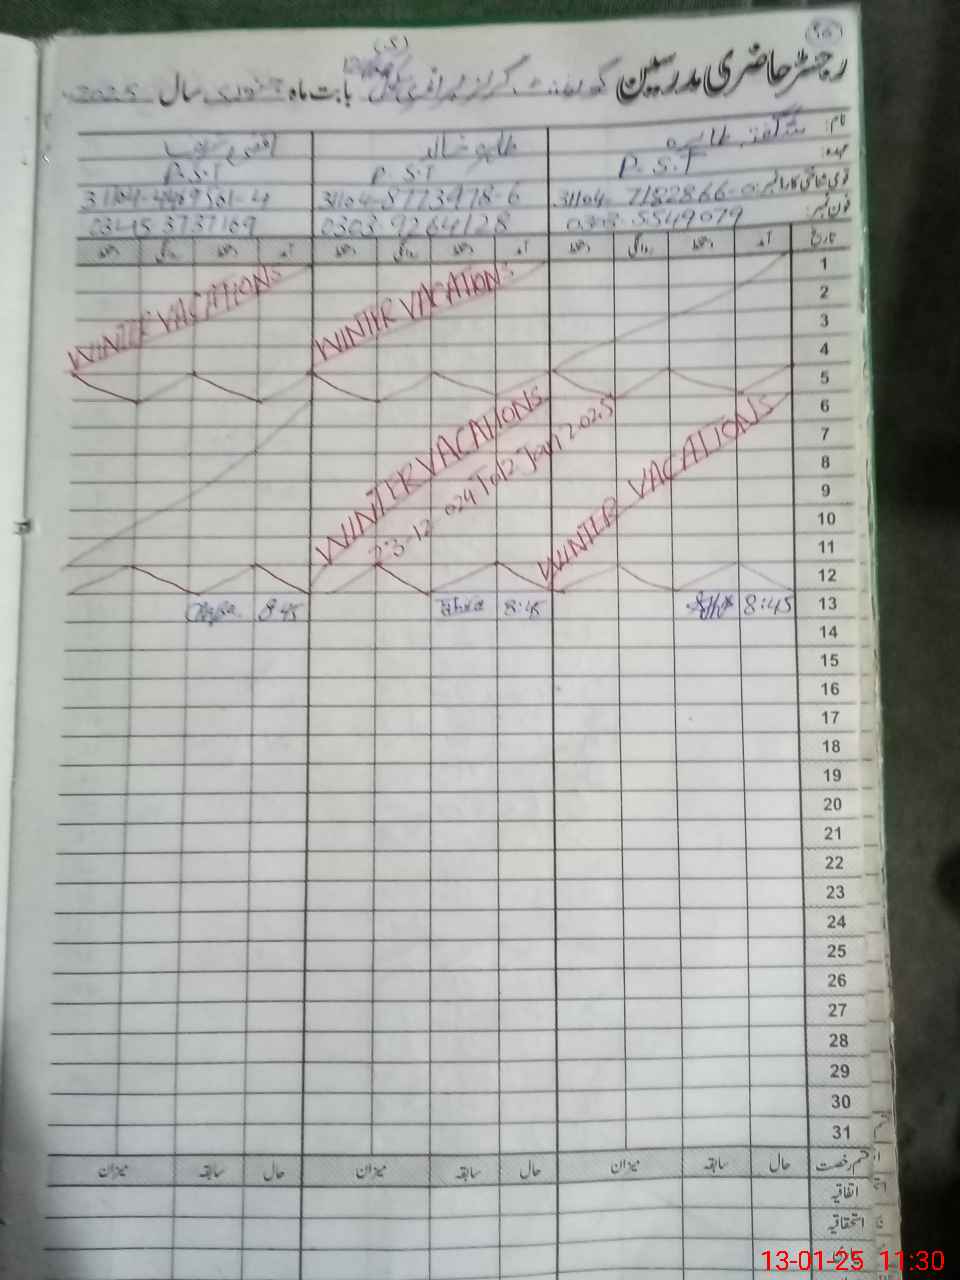 رجسٹر حاضری مدرسین گورنمنٹ گرلز پرائمری سکول بابت ماہ جنوری سال 2025
نام: شگفتہ طاہرہ
عہدہ: P.S.T P.S.T P.S.T
قومی شناختی کارڈ نمبر: 31104-8773978-6
فون نمبر: 0303-9264128 03453737169
تاریخ آمد دستخط روانگی دستخط آمد دستخط روانگی دستخط آمد دستخط روانگی دستخط
1
2
WINTER VACATIONS WINTER VACATIONS
3
4
5
6
7
WINTER VACATIONS
8
23-12 024 To 12 Jan 2025
9
WINTER VACATIONS
10
11
12
13 8:45 8:45 8:45
14
15
16
17
18
19
20
21
22
23
24
25
26
27
28
29
30
31
قسم رخصت حال سابقہ میزان حال سابقہ میزان حال سابقہ میزان
اتفاقیہ
استحقاقیہ
13-01-25 11:30